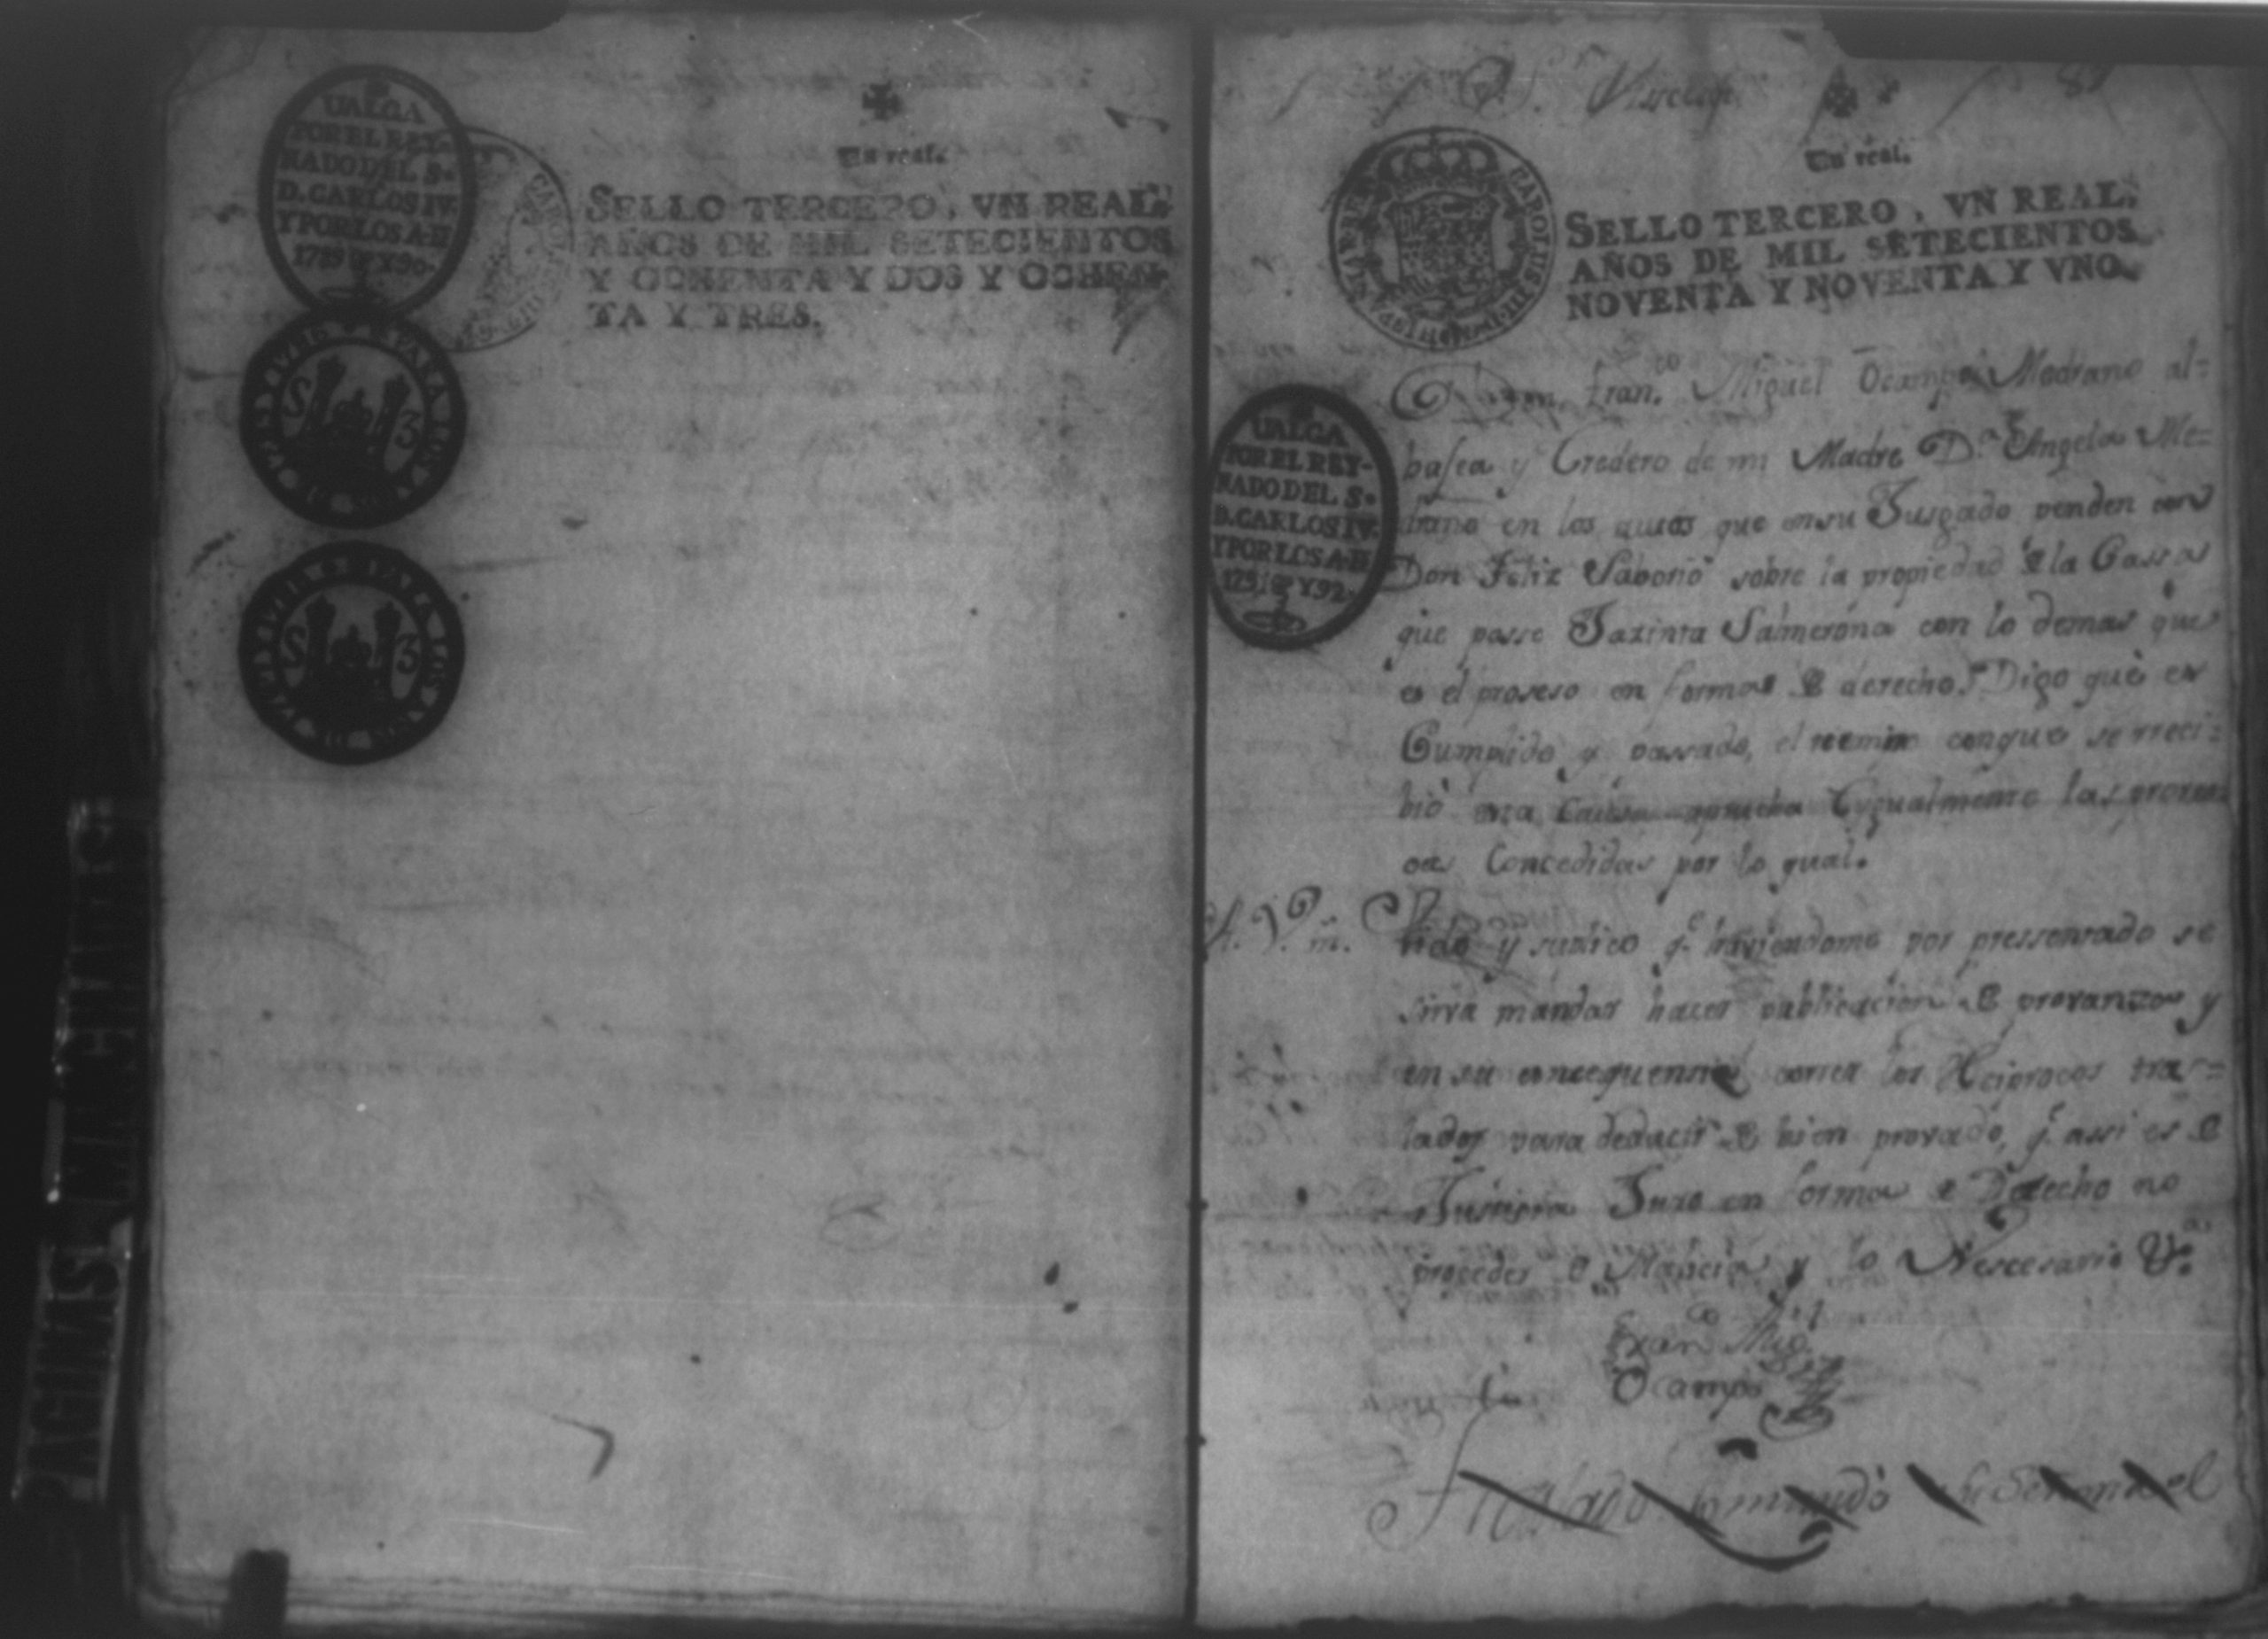 UALGA
POR EL REY-
NADO DEL S.
D. CARLOS IV.
Y POR LOS A.
1789 Y 90.
Un real.
SELLO TERCERO, VN REAL,
AÑOS DE MIL SETECIENTOS
Y OCHENTA Y DOS Y OCHEN-
TA Y TRES.
S 3
S 3
Un real.
CAROLUS III
SELLO TERCERO, VN REAL,
AÑOS DE MIL SETECIENTOS
NOVENTA Y NOVENTA Y VNO.
UALGA
POR EL REY-
NADO DEL S.
D. CARLOS IV.
Y POR LOS A.
1791 Y 92.
Fran.co Miguel Ocampo Medrano al=
basea y Eredero de mi Madre D.a Angela Me=
drano en los autos que en su Jusgado penden con
Don Feliz Saborio sobre la propiedad de la Cassa
que passe Jazinta Salmerona con lo demas que
es el proseso en forma de derecho. Digo que es
Cumplido y passado, el termino conque se rreci=
bió esta Causa aprueba Cygualmente las
Concedidas por lo qual.
A. V. m. Pido y suplico q.e haviendome por pressentado se
sirva mandar hacer publicacion de provanzas y
en su consequensia correr los Reciprocos tras=
lados para deducir de bien provado, q.e assi es de
Justisia Juro en forma de Derecho no
proceder de Malicia y lo Nescesario V.a
Fran.co Mig.l
Ocampo